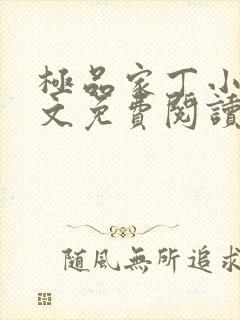 極品家丁小
文免費閱讀
隨風無所追求